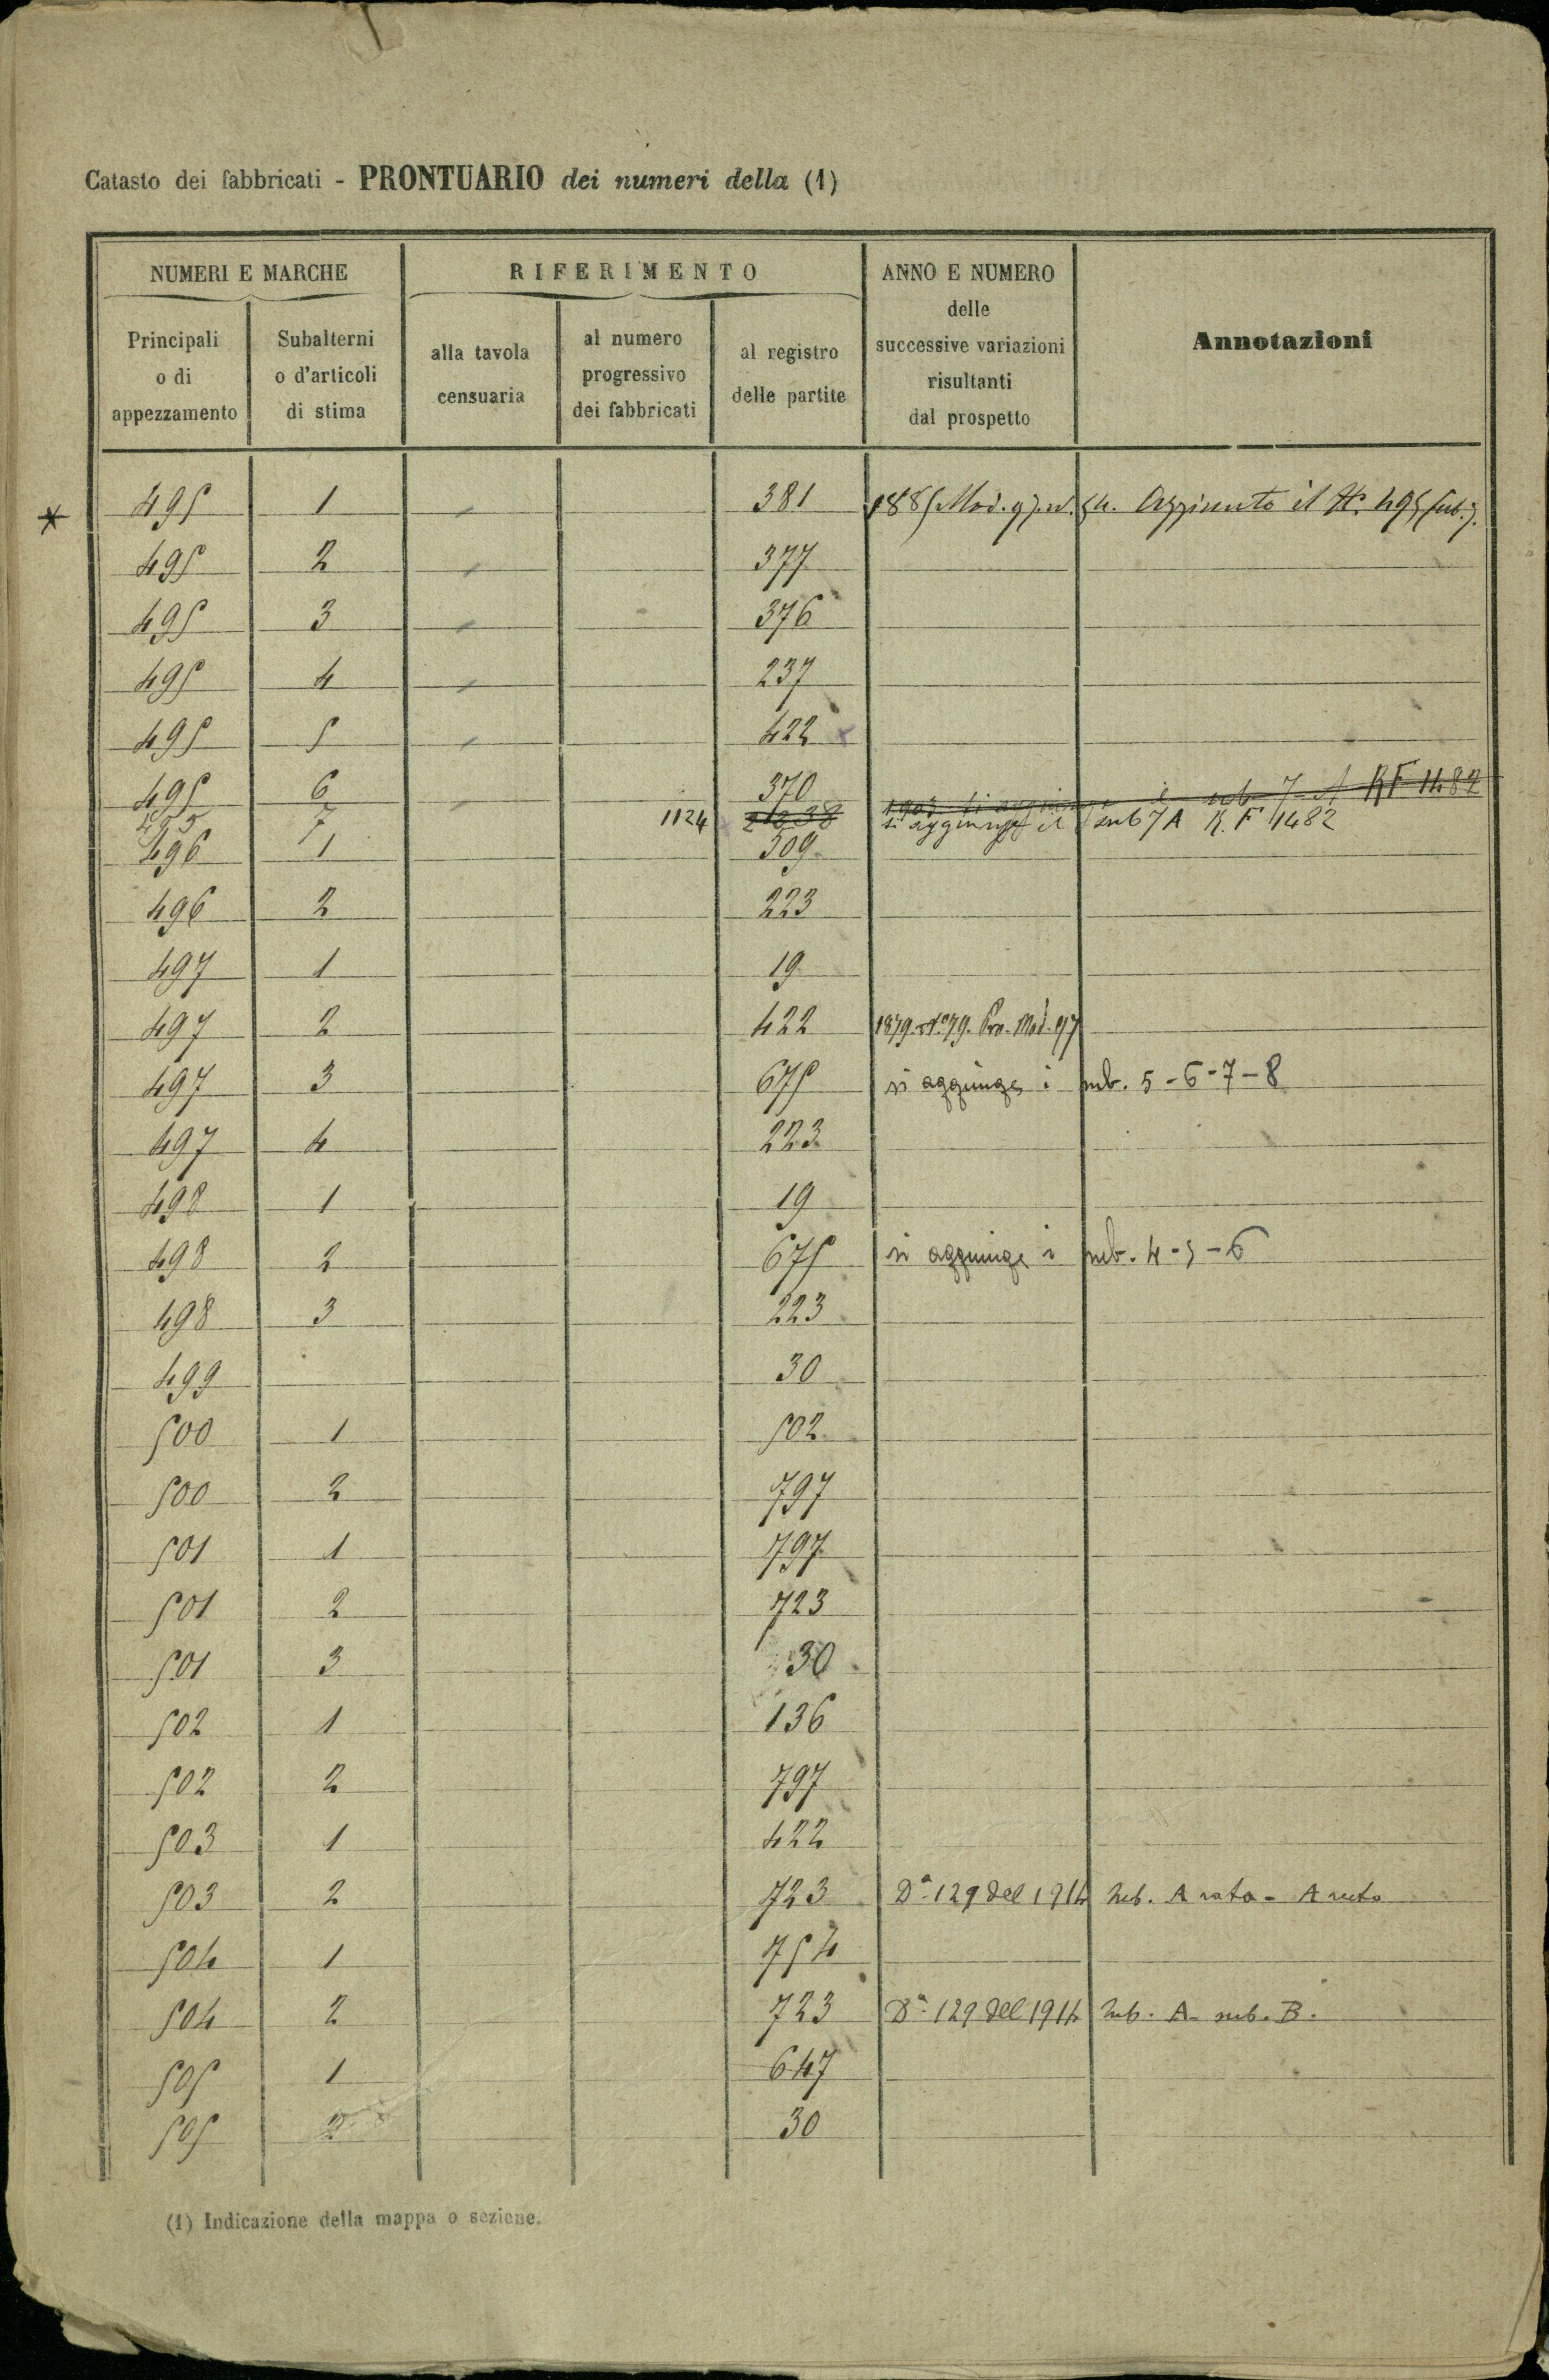 Catasto dei fabbricati - PRONTUARIO dei numeri della (1)
NUMERI E MARCHE
RIFERIMENTO
ANNO E NUMERO
delle
successive variazioni
risultanti
dal prospetto
Annotazioni
Principali
o di
appezzamento
Subalterni
o d'articoli
di stima
alla tavola
censuaria
al numero
progressivo
dei fabbricati
al registro
delle partite
* 495 1 381 1885 Mod. 97. n. 54. Aggiunto il N. 495 sub. 7.
495 2 377
495 3 376
495 4 237
495 5 422 x
495 6 370 1903 si aggiunge il sub 7 A RF 1482
495 7 1124 si aggiunge il sub 7 A R. F 1482
496 1 509
496 2 223
497 1 19
497 2 422 1879. N.° 79. Pro. Mod. 97
497 3 675 si aggiunge i sub. 5 - 6 - 7 - 8
497 4 223
498 1 19
498 2 675 si aggiunge i sub. 4 - 5 - 6
498 3 223
499 30
500 1 502
500 2 797
501 1 797
501 2 723
501 3 30
502 1 136
502 2 797
503 1 422
503 2 723 Dª 129 del 1914 sub. A rata - A
504 1 754
504 2 723 Dª 129 del 1914 sub. A - sub. B.
505 1 647
505 2 30
(1) Indicazione della mappa o sezione.